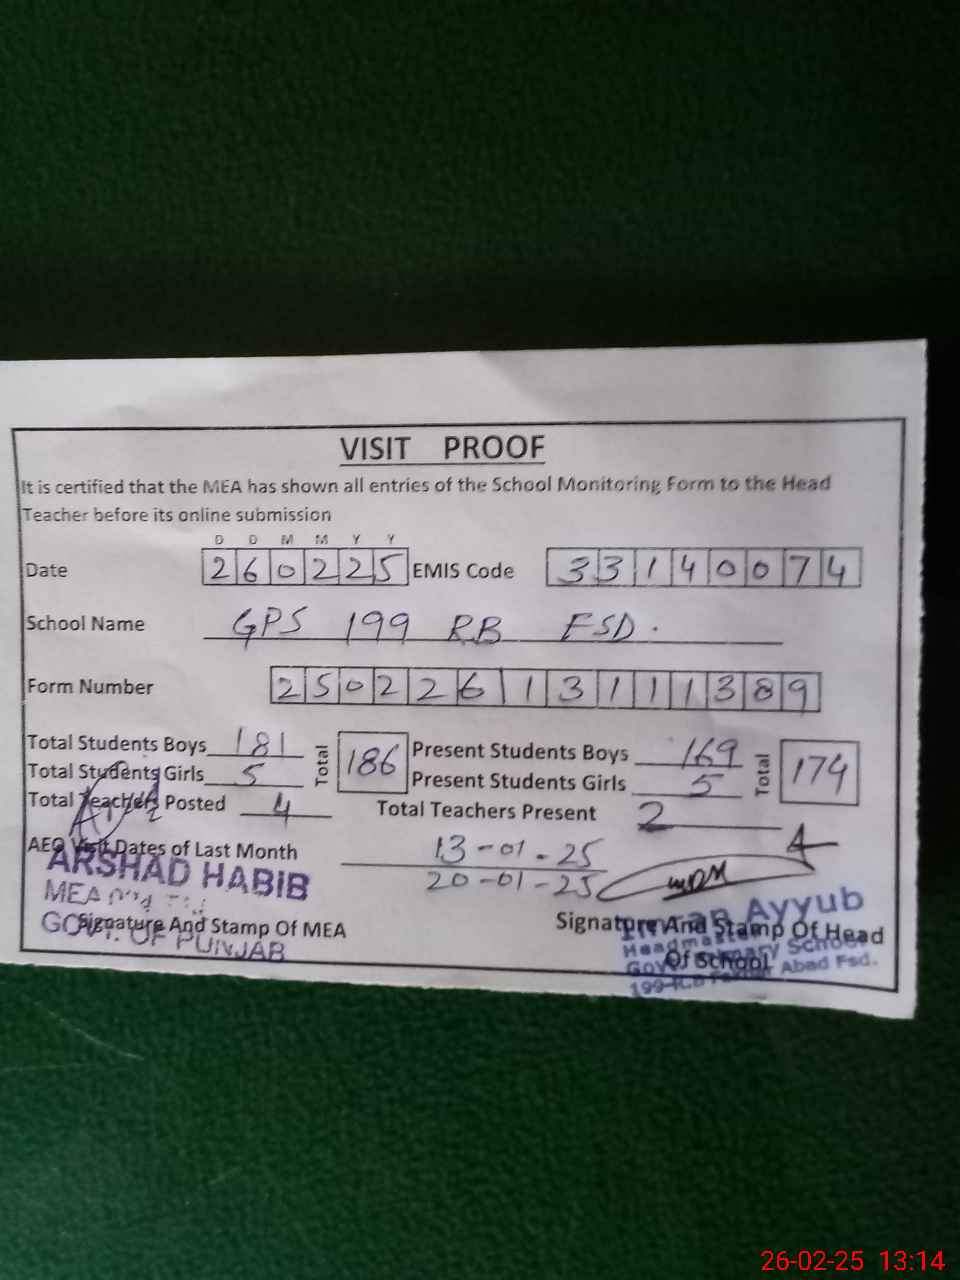 VISIT PROOF
It is certified that the MEA has shown all entries of the School Monitoring Form to the Head
Teacher before its online submission
D D M M Y Y
Date 260225 EMIS Code 33140074
School Name GPS 199 RB FSD.
Form Number 25022613111389
Total Students Boys 181 Total 186 Present Students Boys 169 Total 174
Total Students Girls 5 Present Students Girls 5
Total Teachers Posted 4 Total Teachers Present 2
AEO Visit Dates of Last Month 13-01-25
20-01-25
ARSHAD HABIB
MEA
GOVT. OF PUNJAB
Signature And Stamp Of MEA
Signature And Stamp Of Head
Of School
Ayyub
Headmaster
Primary School
Abad Fsd.
26-02-25 13:14